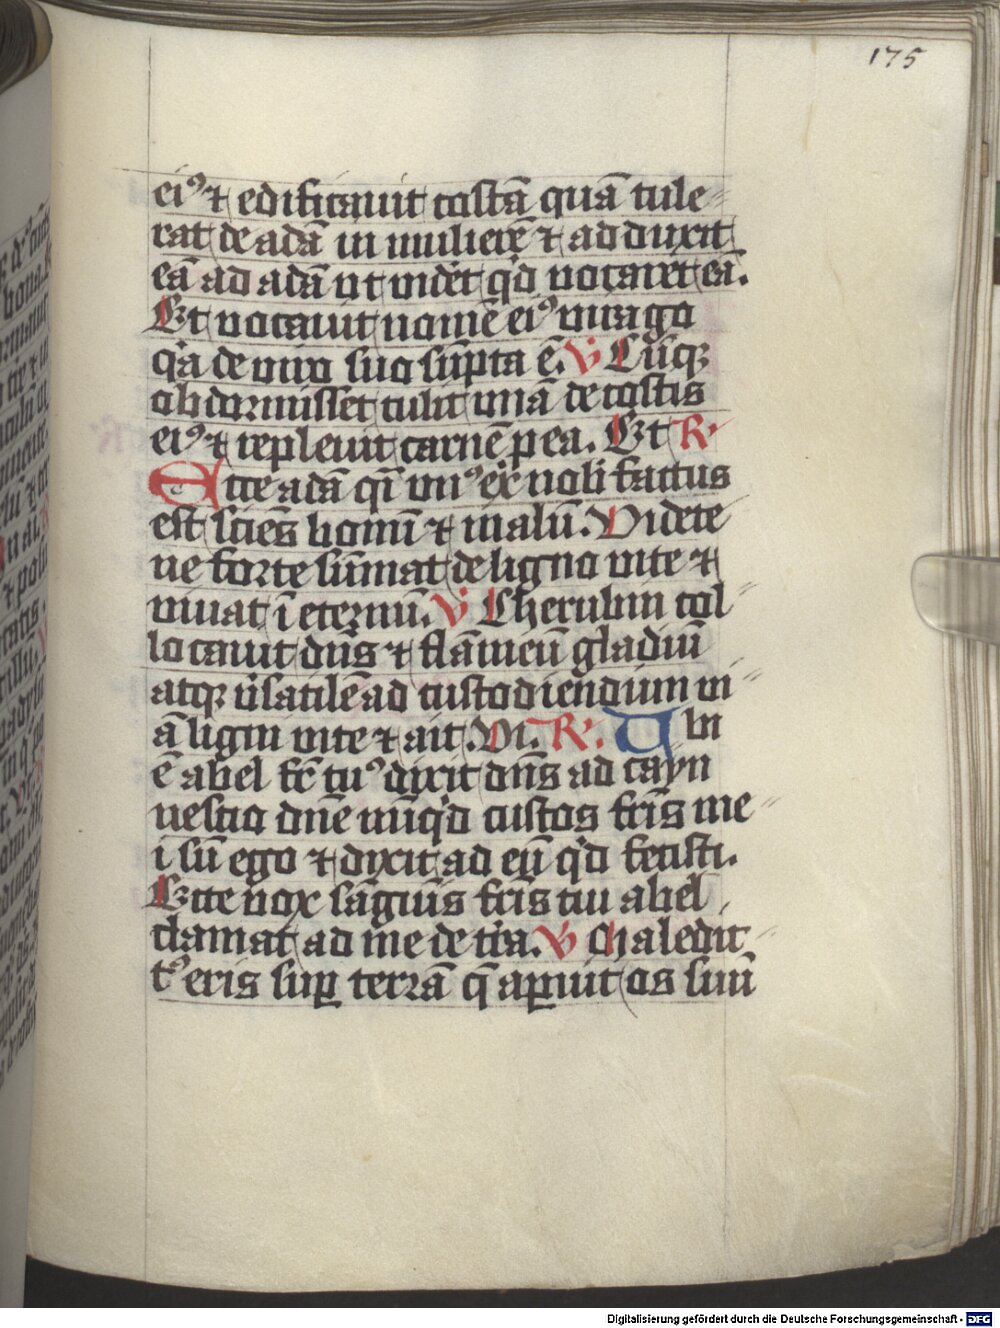 175
ei⁹ ⁊ edificauit costā quā tule
rat de adā in mulierē ⁊ adduxit
eā ad adā ut uidēt qͥd uocaret eā.
Et uocauit nomē ei⁹ uirago
qͥa de uiro suo sūpta ē. V Cūqꝫ
obdormisset tulit unā de costis
ei⁹ ⁊ repleuit carnē p ea. Et R
Ecce adā qͥ un⁹ ex nob̄ factus
est sciēs bonū ⁊ malū. Videte
ne forte sūmat de ligno uite ⁊
uiuat ī eternū. V Cherubin col
locauit dn̄s ⁊ flāmeū gladiū
atqꝫ ūsatile ad custodiendum ui
ā ligni uite ⁊ ait. Vi. R. Ubi
ē abel fr̄ tu⁹ dixit dn̄s ad cayn
nescio dn̄e nūqͥd custos fr̄is me
i sū ego ⁊ dixit ad eū qͥd fecisti.
Ecce uox sāguīs fr̄is tui abel
clamat ad me de tr̄a. V Maledic
t⁹ eris suꝑ terrā q̄ aꝑuit os suū
Digitalisierung gefördert durch die Deutsche Forschungsgemeinschaft - DFG